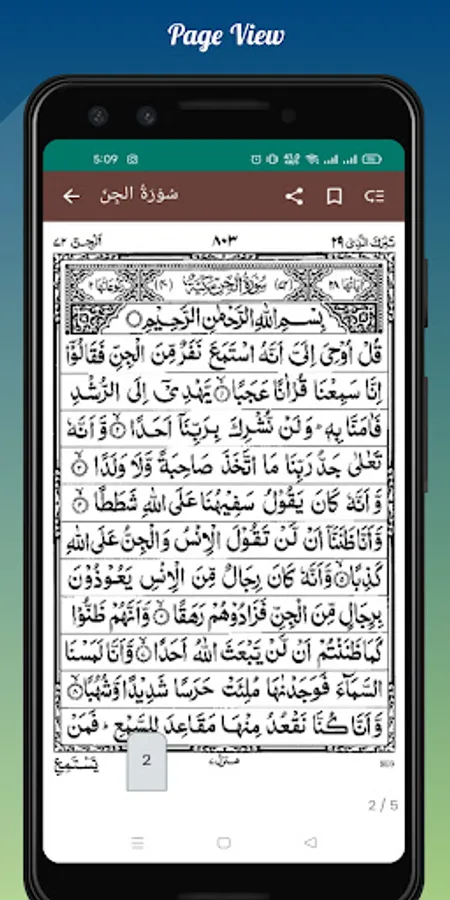 Page View
5:09
سُوْرَةُ الْجِنّ
اَلْجِنّ ٧٢ ٨٠٣ تَبٰرَكَ الَّذِیْ ٢٩
اٰيَاتُهَا ٢٨ سُوْرَةُ الْجِنِّ مَكِّيَّةٌ (٤٠) رُكُوْعَاتُهَا ٢
بِسْمِ اللّٰهِ الرَّحْمٰنِ الرَّحِيْمِ
قُلْ اُوْحِیَ اِلَیَّ اَنَّهُ اسْتَمَعَ نَفَرٌ مِّنَ الْجِنِّ فَقَالُوْۤا
اِنَّا سَمِعْنَا قُرْاٰنًا عَجَبًا ۙ۝١ يَّهْدِیْۤ اِلَى الرُّشْدِ
فَاٰمَنَّا بِهٖ ؕ وَلَنْ نُّشْرِكَ بِرَبِّنَاۤ اَحَدًا ۙ۝٢ وَّاَنَّهٗ
تَعٰلٰى جَدُّ رَبِّنَا مَا اتَّخَذَ صَاحِبَةً وَّلَا وَلَدًا ۙ۝٣
وَّاَنَّهٗ كَانَ يَقُوْلُ سَفِيْهُنَا عَلَى اللّٰهِ شَطَطًا ۙ۝٤
وَّاَنَّا ظَنَنَّاۤ اَنْ لَّنْ تَقُوْلَ الْاِنْسُ وَالْجِنُّ عَلَى اللّٰهِ
كَذِبًا ۙ۝٥ وَّاَنَّهٗ كَانَ رِجَالٌ مِّنَ الْاِنْسِ يَعُوْذُوْنَ
بِرِجَالٍ مِّنَ الْجِنِّ فَزَادُوْهُمْ رَهَقًا ۙ۝٦ وَّاَنَّهُمْ ظَنُّوْا
كَمَا ظَنَنْتُمْ اَنْ لَّنْ يَّبْعَثَ اللّٰهُ اَحَدًا ۙ۝٧ وَّاَنَّا لَمَسْنَا
السَّمَآءَ فَوَجَدْنٰهَا مُلِئَتْ حَرَسًا شَدِيْدًا وَّشُهُبًا ۙ۝٨
وَّاَنَّا كُنَّا نَقْعُدُ مِنْهَا مَقَاعِدَ لِلسَّمْعِ ؕ فَمَنْ
يَّسْتَمِعِ
2
منزل ٧
2 / 5